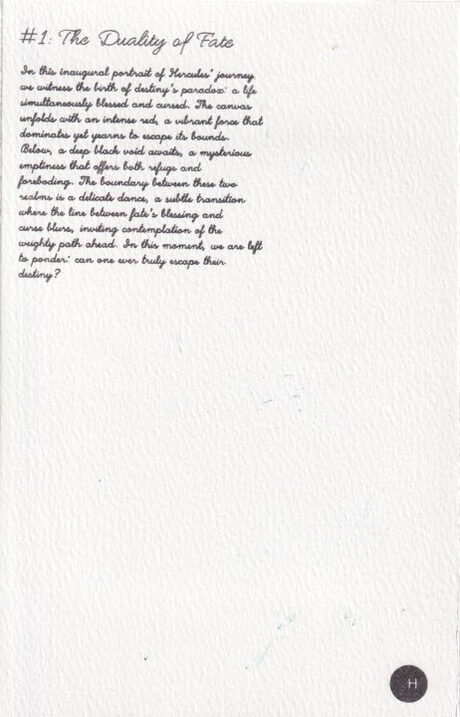 #1: The Duality of Fate
In this inaugural portrait of Hercules' journey,
we witness the birth of destiny's paradox: a life
simultaneously blessed and cursed. The canvas
unfolds with an intense red, a vibrant force that
dominates yet yearns to escape its bounds.
Below, a deep black void awaits, a mysterious
emptiness that offers both refuge and
foreboding. The boundary between these two
realms is a delicate dance, a subtle transition
where the line between fate's blessing and
curse blurs, inviting contemplation of the
weighty path ahead. In this moment, we are left
to ponder: can one ever truly escape their
destiny?
H